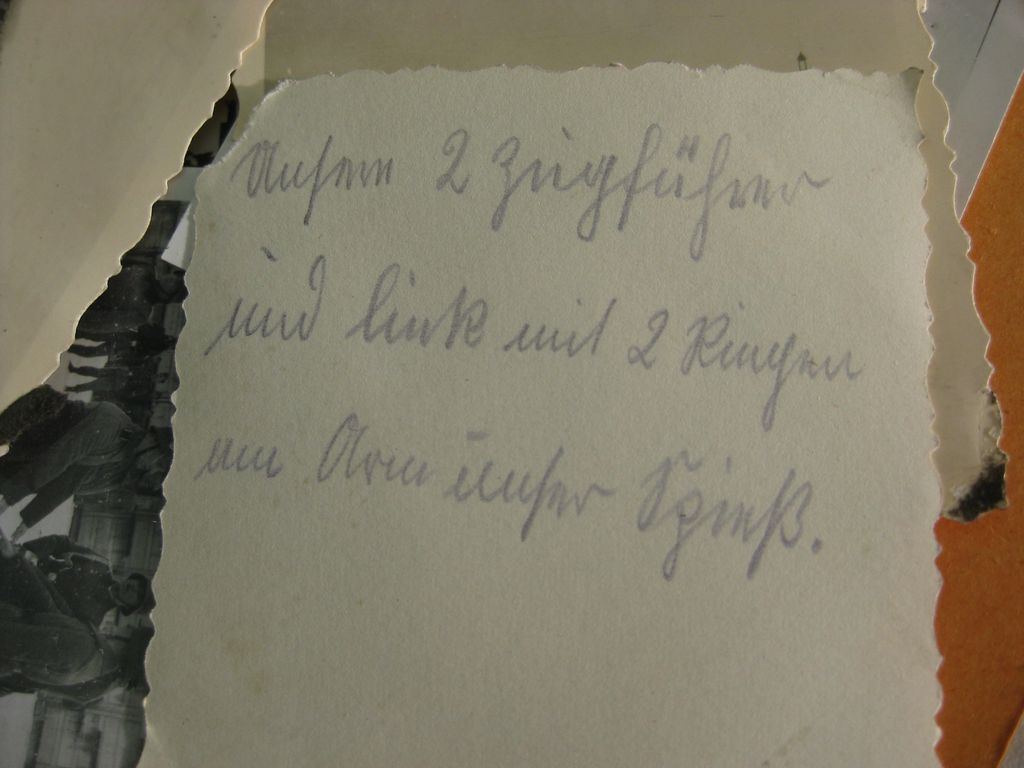 Unsere 2 Zugführer
und link mit 2 Ringen
am Arm unser Spieß.